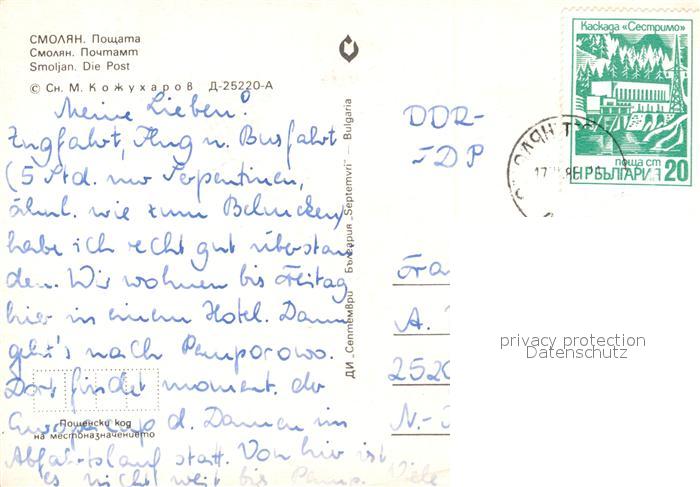 СМОЛЯН. Пощата
Смолян. Почтамт
Smoljan. Die Post
© Сн. М. Кожухаров Д-25220-А
Meine Lieben!
Zugfahrt, Flug u. Busfahrt
(5 Std. nur Serpentinen,
ähnl. wie zum
habe ich recht gut überstan
den. Wir wohnen bis Freitag
hier in einem Hotel. Dann
geht's nach Pamporowo.
Dort findet moment. der
Europacup d. Damen im
Abfahrtslauf statt. Von hier ist
es nicht weit bis Pamp. Viele
Пощенски код
на местоназначението
ДИ „Септември" България „Septemvri" — Bulgaria
Каскада «Сестримо»
поща ст
НР БЪЛГАРИЯ 20
DDR-
TDP
Fra
A.
2520
N.-
privacy protection
Datenschutz